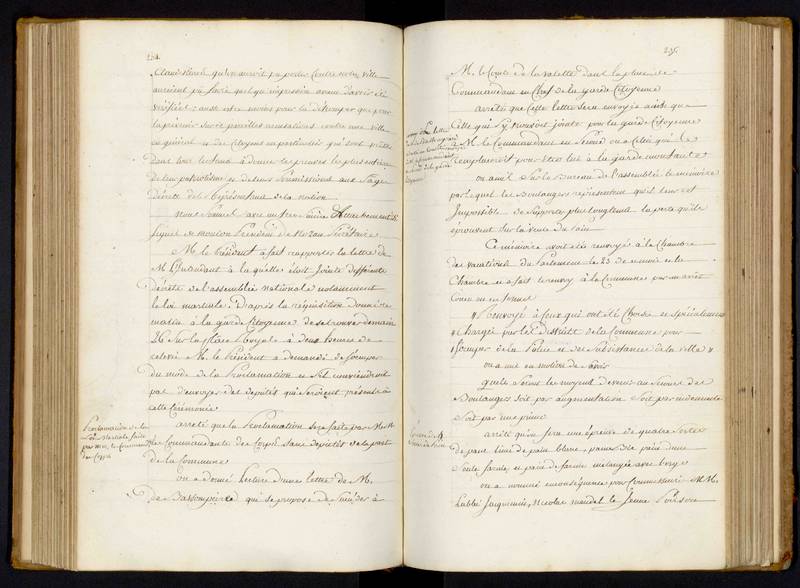 234.
qu'on auroit pu porter Contre notre ville
auroient pu faire quelqu'impression avant d'avoir été
vérifiées: aussi est ce moins pour la détromper que pour
la prévenir sur de pareilles accusations contre une ville
en général et des Citoyens en particulier qui sont prêts
dans tous les tems à donner les preuves les plus
de leur patriotisme et de leur Soumission aux Sages
décrets des Représentans de la nation
Nous Sommes avec un très sincère Attachement &
Signé de Mouzon Président de Nozan Secrétaire
M. le Président a fait rapporter la lettre de
M. l'Intendant à la quelle étoit Jointe différents
décrets de l'assemblée nationale notamment
la loi martiale. D'après la réquisition donnée ce
matin à la garde Citoyenne de se trouver demain
26 Sur la place Royale à deux heures de
relevée M. le Président a demandé de s'occuper
du mode de la Proclamation et S'il conviendroit
pas d'envoyer des députés qui Seroient présents à
cette Cérémonie
arrêté que la Proclamation Sera faite par M.M.
les Commandants des Corps Sans députés de la part
de la Commune
on a donné Lecture d'une lettre de M.
De Bassompierre qui se propose de Succéder à
Proclamation de la
Loi Martiale faite
par MM. les Commandans
des Corps
235.
M. le Comte de la valette dans la place de
Commandant en Chef de la garde Citoyenne
arrêté que Cette lettre Sera envoyée ainsi que
Celle qui s'y trouvoit jointe pour la garde Citoyenne
à M. le Commandant en Second ou à Celui qui le
remplaceroit pour être lue à la garde montante
on a mis Sur le Bureau de l'assemblée le mémoire
par lequel les Boulangers représentent qu'il leur est
Impossible de Supporter plus longtems la perte qu'ils
éprouvent Sur la vente du Pain
Ce mémoire avoit été renvoyé à la Chambre
des vacations du Parlement le 23 de ce mois et la
Chambre en a fait le renvoy à la Commune par un arrêt
Conçu en forme
Renvoyé à Ceux qui ont été Choisis et Spécialement
Chargés par les districts de la Commune pour
s'occuper de la Police et des Subsistances de la ville
on a mis en motion de Savoir
quels Seront les moyens de venir au Secours des
Boulangers Soit par augmentation Soit par indemnité
Soit par une prime
arrêté qu'on fera une épreuve de quatre Sortes
de pain Savoir de pain blanc, pain Bis
de farine et pain de farine mélangée avec l'orge
on a nommé en conséquence pour Commissaires M.M.
Labbé Jacquemin, Nicolas mandel le Jeune Poirson